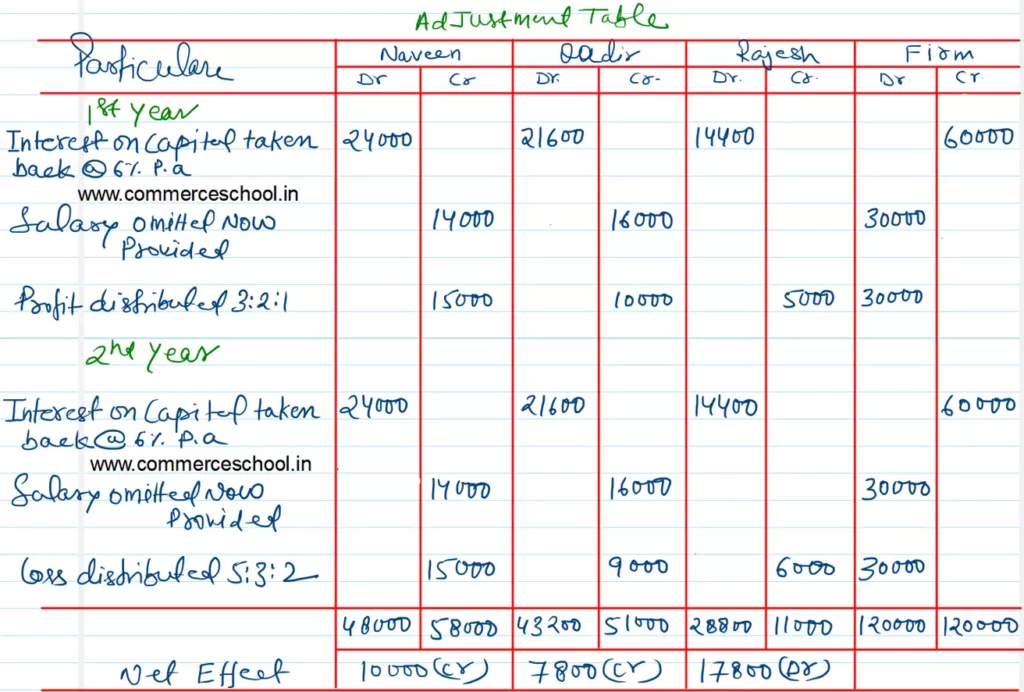 AdJustment Table
Particulars Naveen Qadir Rajesh Firm
Dr Cr Dr. Cr- Dr. Cr. Dr Cr.
1st Year
Interest on Capital taken 24000 21600 14400 60000
back @ 6% P.a
www.commerceschool.in
Salary omitted Now 14000 16000 30000
Provided
Profit distributed 3:2:1 15000 10000 5000 30000
2nd Year
Interest on Capital taken 24000 21600 14400 60000
back @ 6% P.a
www.commerceschool.in
Salary omitted Now 14000 16000 30000
Provided
Loss distributed 5:3:2 15000 9000 6000 30000
48000 58000 43200 51000 28800 11000 120000 120000
Net Effect 10000 (Cr) 7800 (Cr) 17800 (Dr)